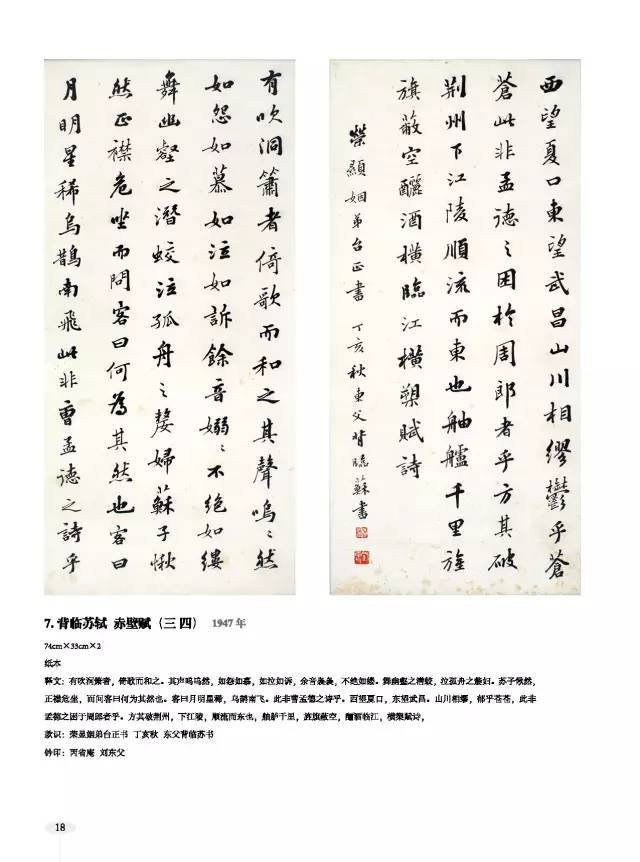 有吹洞簫者倚歌而和之其聲嗚〻然
如怨如慕如泣如訴餘音嫋〻不絕如縷
舞幽壑之潛蛟泣孤舟之嫠婦蘇子愀
然正襟危坐而問客曰何為其然也客曰
月明星稀烏鵲南飛此非曹孟德之詩乎
西望夏口東望武昌山川相繆鬱乎蒼
蒼此非孟德之困於周郎者乎方其破
荊州下江陵順流而東也舳艫千里旌
旗蔽空釃酒橫臨江橫槊賦詩
榮顯姻弟台正書 丁亥秋東父背臨蘇書
7. 背临苏轼 赤壁赋（三 四） 1947 年
74cm×33cm×2
纸本
释文：有吹洞箫者，倚歌而和之。其声呜呜然，如怨如慕，如泣如诉，余音袅袅，不绝如缕。舞幽壑之潜蛟，泣孤舟之嫠妇。苏子愀然，
正襟危坐，而问客曰何为其然也。客曰月明星稀，乌鹊南飞。此非曹孟德之诗乎。西望夏口，东望武昌。山川相缪，郁乎苍苍，此非
孟德之困于周郎者乎。方其破荆州，下江陵，顺流而东也，舳舻千里，旌旗蔽空，酾酒临江，横槊赋诗，
款识：荣显姻弟台正书 丁亥秋 东父背临苏书
钤印：丙省庵 刘东父
18